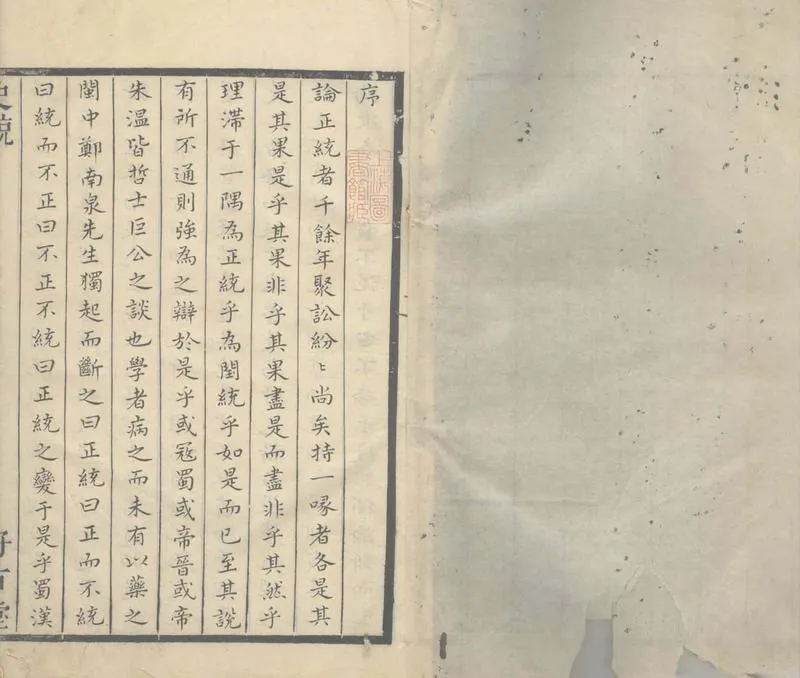 序
論正統者千餘年聚訟紛〻尚矣持一喙者各是其
是其果是乎其果非乎其果盡是而盡非乎其然乎
理滯于一隅為正統乎為閏統乎如是而已至其說
有所不通則強為之辯於是乎或寇蜀或帝晉或帝
朱溫皆哲士巨公之談也學者病之而未有以藥之
閩中鄭南泉先生獨起而斷之曰正統曰正而不統
曰統而不正曰不正不統曰正統之變于是乎蜀漢